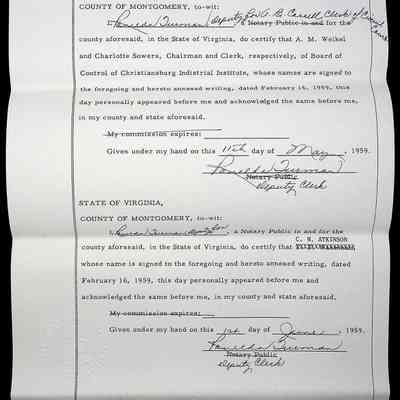 COUNTY OF MONTGOMERY, to-wit:
I, Ronelda Furman Deputy for A. B. Correll, Clerk of Circuit Court a Notary Public in and for the
county aforesaid, in the State of Virginia, do certify that A. M. Weikel
and Charlotte Sowers, Chairman and Clerk, respectively, of Board of
Control of Christiansburg Indistrial Institute, whose names are signed to
the foregoing and hereto annexed writing, dated February 16, 1959, this
day personally appeared before me and acknowledged the same before me,
in my county and state aforesaid.
My commission expires:
Given under my hand on this 11th day of May, 1959.
Notary Public
Deputy Clerk
STATE OF VIRGINIA,
COUNTY OF MONTGOMERY, to-wit:
I, a Notary Public in and for the
county aforesaid, in the State of Virginia, do certify that
C. N. ATKINSON
whose name is signed to the foregoing and hereto annexed writing, dated
February 16, 1959, this day personally appeared before me and
acknowledged the same before me, in my county and state aforesaid.
My commission expires:
Given under my hand on this 1st day of June, 1959.
Notary Public
Deputy Clerk